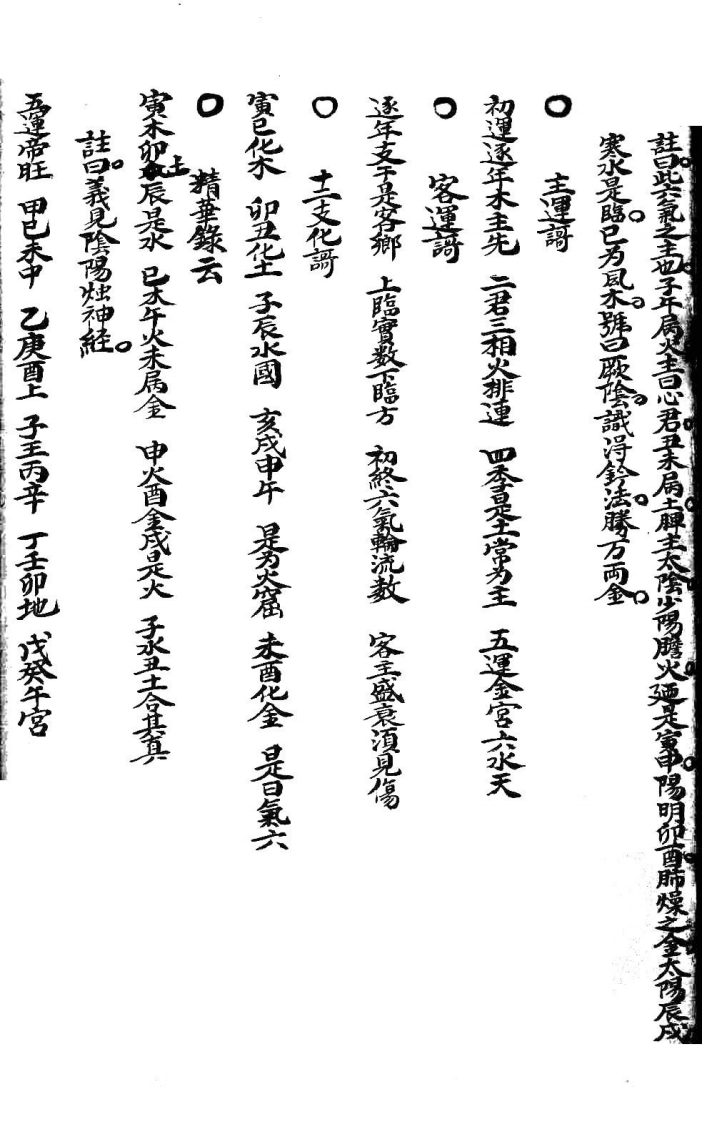 註曰此六氣之主也子午属火主曰心君丑未属土脾主太陰少陽膽火廼是寅申陽明卯酉肺燥之金太陽辰戌
寒水是臨巳为風木號曰厥陰識淂鈐法勝万両金
〇 主運謌
初運逐年木主先 二君三相火排連 四季昰土常为主 五運金宮六水天
〇 客運謌
逐年支干是客郷 上臨實数下臨方 初終六氣輪流数 客主盛衰湏見傷
〇 十二支化謌
寅巳化木 卯丑化土 子辰水國 亥戌申午 是为火窟 未酉化金 是曰氣六
〇 精華錄云
寅木卯土辰是水 巳木午火未属金 申火酉金戌是火 子水丑土合其真
註曰義見陰陽烛神経
五運帝旺 甲巳未中 乙庚酉上 子王丙辛 丁壬卯地 戊癸午宮